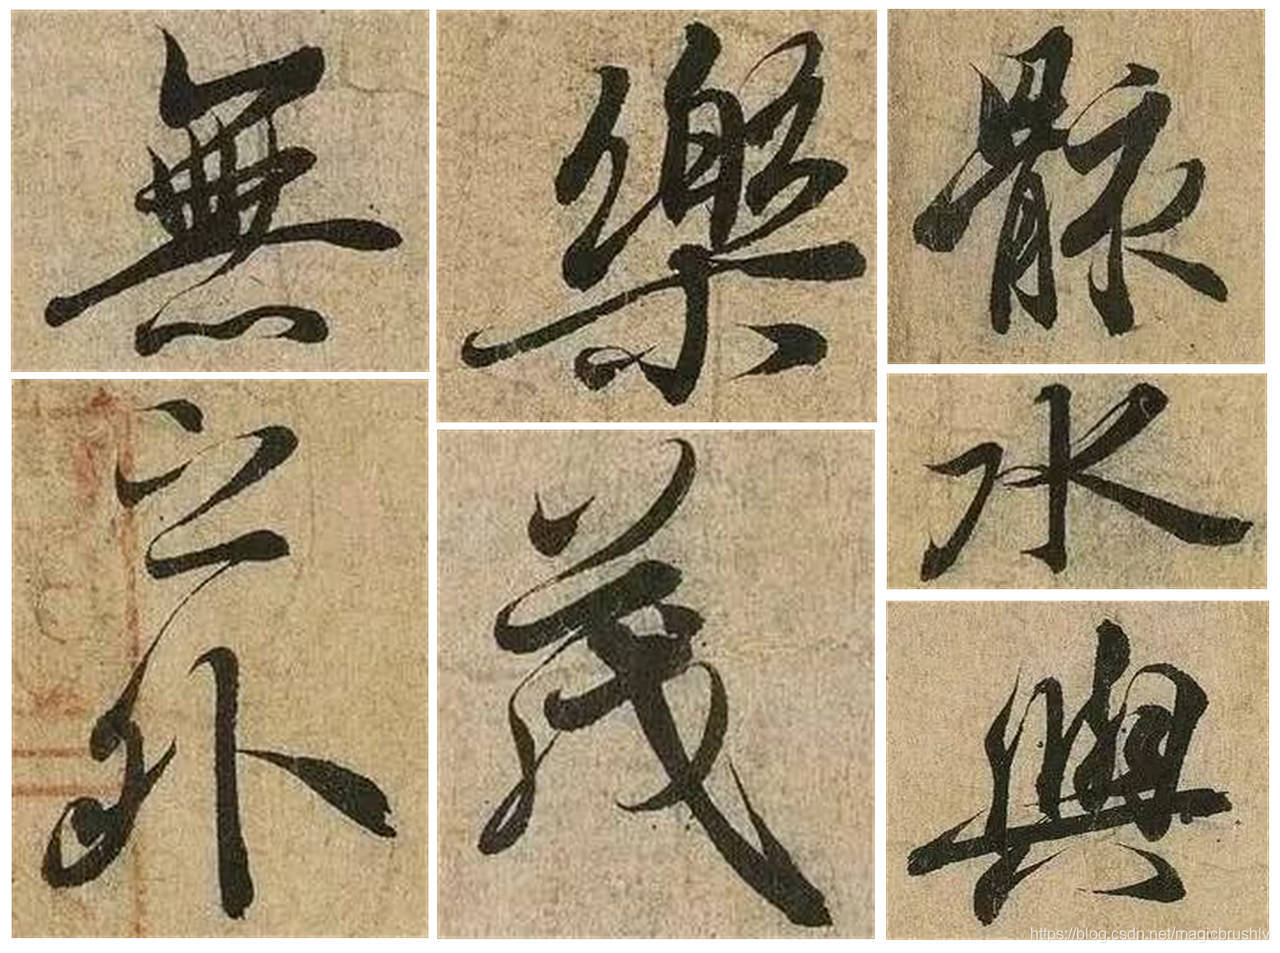 無
樂
骸
之
外
茂
水
興
https://blog.csdn.net/magicbrushlv